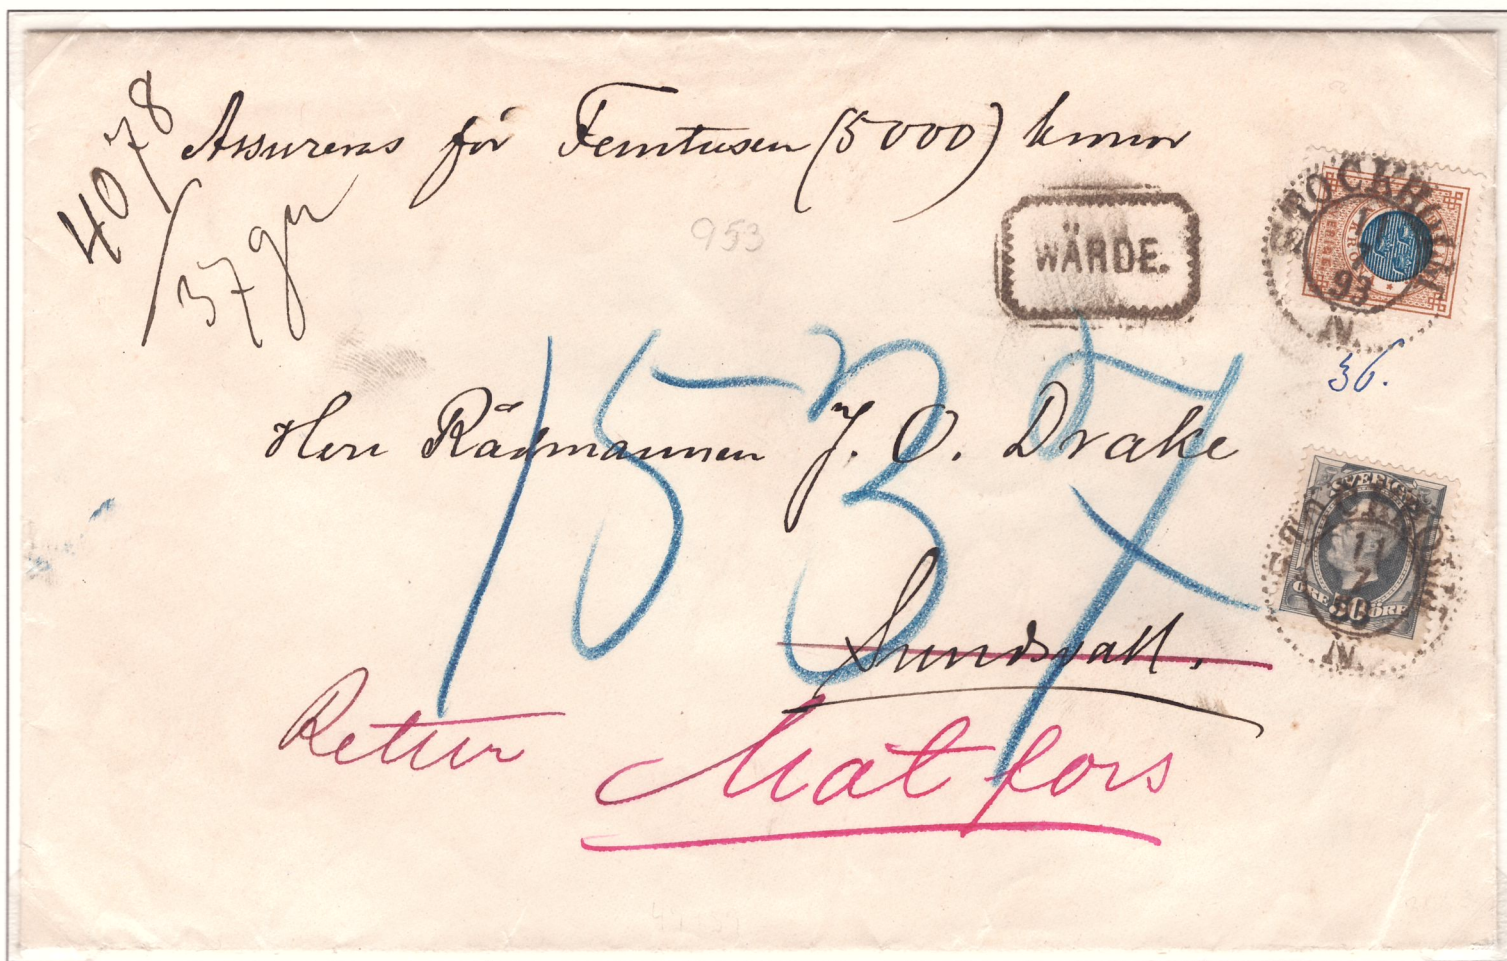 4078
37 gr
Assurens för Femtusen (5000) kronor
953
WÄRDE.
STOCKHOLM
11
7
93
N.
36.
1537
Herr Rådmannen J. O. Drake
SVERIGE
STOCKHOLM
11
7
93
N.
ÖRE 30 ÖRE
Sundsvall.
Retur Matfors